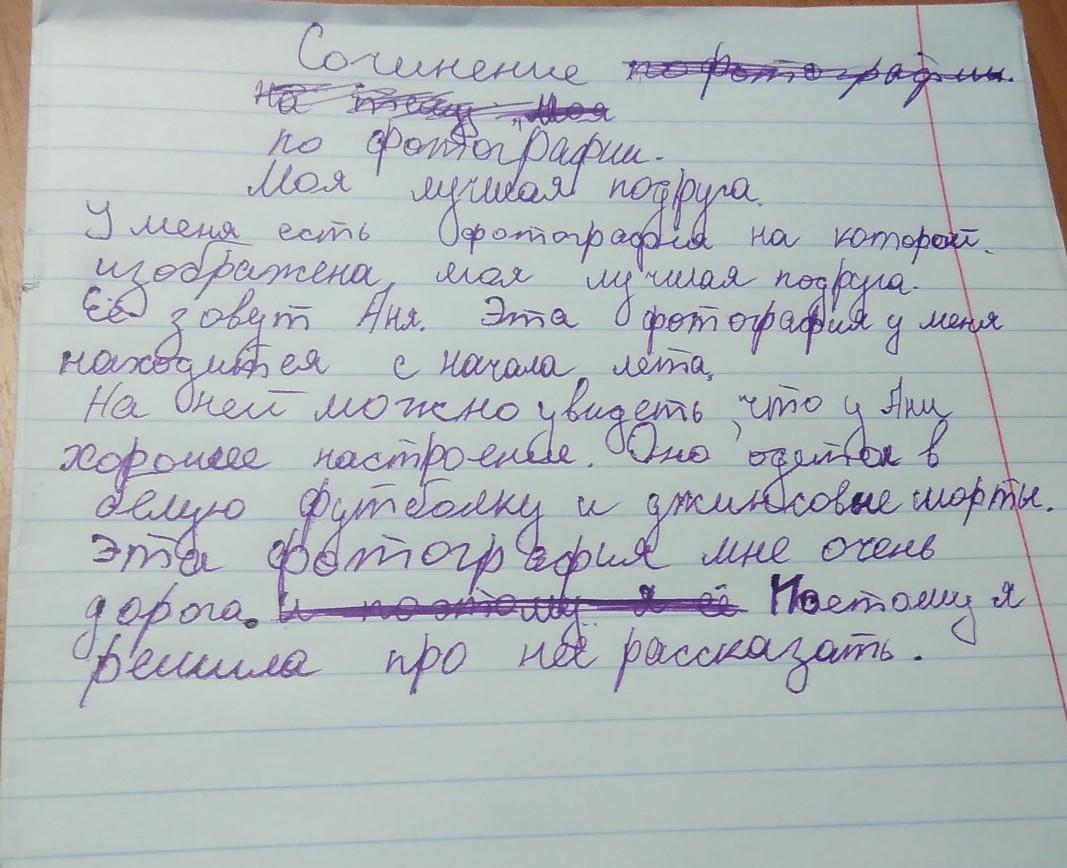 Сочинение по фотографии.
на тему "Моя
по фотографии.
Моя лучшая подруга.
У меня есть фотография на которой.
изображена моя лучшая подруга.
Её зовут Аня. Эта фотография у меня
находится с начала лета.
На ней можно увидеть, что у Ани
хорошее настроение. Оно одета в
белую футболку и джинсовые шорты.
Эта фотография мне очень
дорога. и поэтому я её Поетому я
решила про неё рассказать.